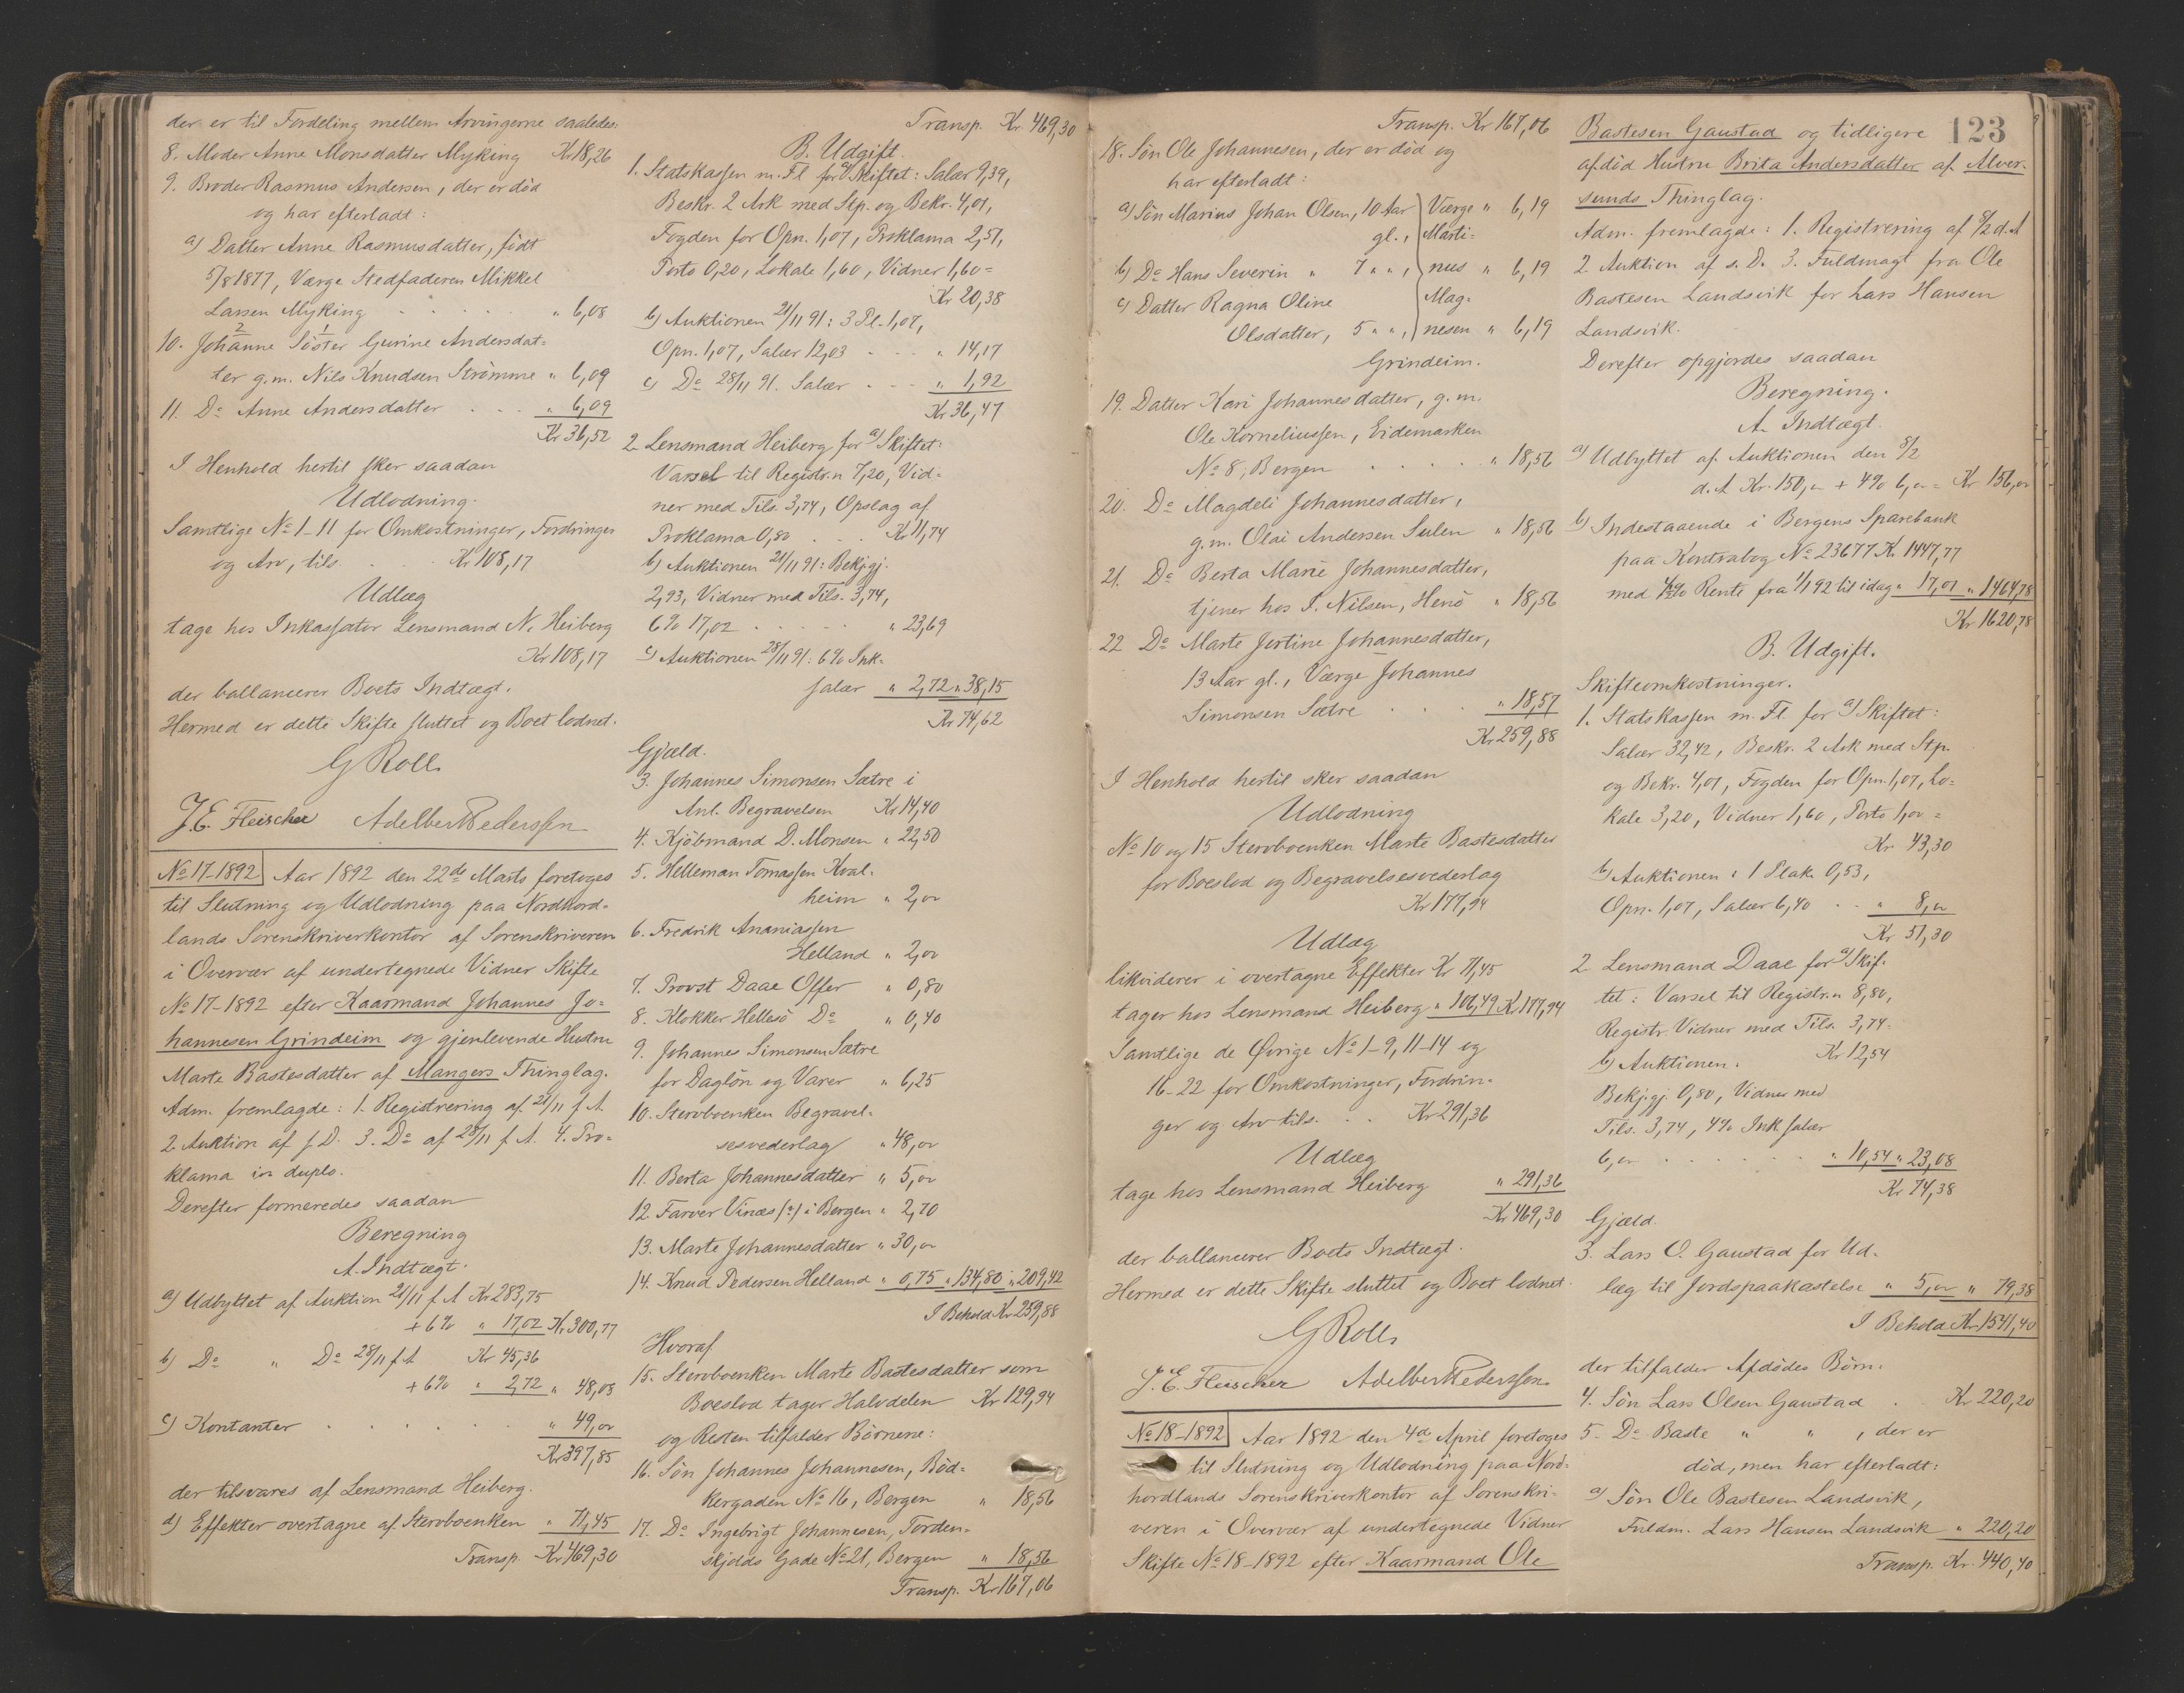 der er til Fordeling mellem Arvingerne saaledes:
8. Moder Anne Monsdatter Myking Kr 18,26
9. Broder Rasmus Andersen, der er død
og har efterladt:
a) Datter Anne Rasmusdatter, født
5/8 1877, Værge Stedfaderen Mikkel
Larsen Myking . . . . . " 6,08
10. Johanne Søster Gurine Andersdat=
ter g.m. Nils Knudsen Strømme " 6,09
11. Do Anne Andersdatter . . . " 6,09
Kr 36,52
I Henhold hertil sker saadan
Udlodning.
Samtlige No 1-11 for Omkostninger, Fordringer
og Arv, tils. . . Kr 108,17
Udlæg
tage hos Inkassator Lensmand N. Heiberg
Kr 108,17
der ballancerer Boets Indtægt.
Hermed er dette Skifte sluttet og Boet lodnet.
G Roll
J.E. Fleischer Adelbert Pedersen
No 17-1892 Aar 1892 den 22de Marts foretoges
til Slutning og Udlodning paa Nordhord=
lands Sorenskriverkontor af Sorenskriveren
i Overvær af undertegnede Vidner Skifte
No 17-1892 efter Kaarmand Johannes Jo=
hannesen Grindeim og gjenlevende Hustru
Marte Bastesdatter af Mangers Thinglag.
Adm. fremlagde: 1. Registrering af 21/11 f. A.
2. Auktion af s. D. 3. Do af 28/11 f. A. 4. Pro=
klama in duplo.
Derefter formeredes saadan
Beregning
A. Indtægt.
a) Udbyttet af Auktion 21/11 f. A. Kr 283,75
+ 6% " 17,02 Kr 300,77
b) Do " Do 28/11 f. A. Kr 45,36
+ 6% " 2,72 " 48,08
c) Kontanter . . . . . . " 49,00
Kr 397,85
der tilsvares af Lensmand Heiberg.
d) Effekter overtagne af Stervboenken " 71,45
Transp. Kr 469,30
Transp. Kr 469,30
B. Udgift.
1. Statskassen m. Fl. for a) Skiftet: Salær 9,39,
Beskr. 2 Ark med Stp. og Bekr. 4,01,
Fogden for Opn. 1,07, Proklama 2,51,
Porto 0,20, Lokale 1,60, Vidner 1,60 =
Kr 20,38
b) Auktionen 21/11 91: 3 Pl. 1,07,
Opn. 1,07, Salær 12,03 . . . " 14,17
c) Do 28/11 91. Salær . . . " 1,92
Kr 36,47
2. Lensmand Heiberg for a) Skiftet:
Varsel til Registr.n 7,20, Vid=
ner med Tils. 3,74, Opslag af
Proklama 0,80 . . . Kr 11,74
b) Auktionen 21/11 91: Bekj.gj.
2,93, Vidner med Tils. 3,74,
6% 17,02 . . . . . " 23,69
c) Auktionen 28/11 91: 6% Ink=
salær " 2,72 " 38,15
Kr 74,62
Gjæld.
3. Johannes Simonsen Sætre i
Anl. Begravelsen Kr 14,40
4. Kjøbmand D. Monsen " 22,50
5. Helleman Tomassen Kval=
heim " 2,00
6. Fredrik Ananiassen
Helland " 2,00
7. Provst Daae Offer " 0,80
8. Klokker Hellesø Do " 0,40
9. Johannes Simonsen Sætre
for Dagløn og Varer " 6,25
10. Stervboenken Begravel=
sesvederlag " 48,00
11. Berta Johannesdatter " 5,00
12. Farver Vinæs (?) i Bergen " 2,70
13. Marte Johannesdatter " 30,00
14. Knud Pedersen Helland " 0,75 " 134,80 " 209,42
I Behold Kr 259,88
Hvoraf
15. Stervboenken Marte Bastesdatter som
Boeslod tager Halvdelen Kr 129,94
og Resten tilfalder Børnene:
16. Søn Johannes Johannesen, Bød=
kergaden No 16, Bergen " 18,56
17. Do Ingebrigt Johannesen, Torden=
skjolds Gade No 21, Bergen " 18,56
Transp. Kr 167,06
Transp. Kr 167,06
18. Søn Ole Johannesen, der er død og
har efterladt:
a) Søn Marius Johan Olsen, 10 Aar Værge " 6,19
gl., Marti=
b) Do Hans Severin " 7 " ", nus " 6,19
c) Datter Ragna Oline Mag=
Olsdatter, 5 " ", nesen " 6,19
Grindeim.
19. Datter Kari Johannesdatter, g.m.
Ole Korneliussen, Eidemarken
No 8, Bergen . . . . . " 18,56
20. Do Magdeli Johannesdatter,
g.m. Olai Andersen Sulen " 18,56
21. Do Berta Marie Johannesdatter,
tjener hos I. Nilsen, Henø " 18,56
22. Do Marte Jertine Johannesdatter,
13 Aar gl., Værge Johannes
Simonsen Sætre . . . . " 18,57
Kr 259,88
I Henhold hertil sker saadan
Udlodning
No 10 og 15 Stervboenken Marte Bastesdatter
for Boeslod og Begravelsesvederlag
Kr 177,94
Udlæg
likviderer i overtagne Effekter Kr 71,45
tager hos Lensmand Heiberg " 106,49 Kr 177,94
Samtlige de Øvrige No 1-9, 11-14 og
16-22 for Omkostninger, Fordrin=
ger og Arv tils. . . Kr 291,36
Udlæg
tage hos Lensmand Heiberg " 291,36
Kr 469,30
der ballancerer Boets Indtægt.
Hermed er dette Skifte sluttet og Boet lodnet.
G Roll
J.E. Fleischer Adelbert Pedersen
No 18-1892 Aar 1892 den 4de April foretoges
til Slutning og Udlodning paa Nord=
hordlands Sorenskriverkontor af Sorenskri=
veren i Overvær af undertegnede Vidner
Skifte No 18-1892 efter Kaarmand Ole
123
Bastesen Gaustad og tidligere
afdød Hustru Brita Andersdatter af Alver=
sunds Thinglag.
Adm. fremlagde: 1. Registrering af 8/2 d. A.
2. Auktion af s. D. 3. Fuldmagt fra Ole
Bastesen Landsvik for Lars Hansen
Landsvik.
Derefter opgjordes saadan
Beregning.
A. Indtægt.
a) Udbyttet af Auktionen den 8/2
d. A. Kr. 150,00 + 4% 6,00 = Kr 156,00
b) Indestaaende i Bergens Sparebank
paa Kontrabog No 23677 Kr. 1447,77
med Rente fra 1/1 92 til idag " 17,01 " 1464,78
Kr 1620,78
B. Udgift.
Skifteomkostninger.
1. Statskassen m. Fl. for a) Skiftet:
Salær 32,42, Beskr. 2 Ark med Stp.
og Bekr. 4,01, Fogden for Opn. 1,07, Lo=
kale 3,20, Vidner 1,60, Porto 1,00 =
Kr 43,30
b) Auktionen: 1 Plak. 0,53,
Opn. 1,07, Salær 6,40 . . " 8,00
Kr 51,30
2. Lensmand Daae for a) Skif=
tet: Varsel til Registr.n 8,80,
Registr. Vidner med Tils. 3,74 =
Kr 12,54
b) Auktionen:
Bekj.gj. 0,80, Vidner med
Tils. 3,74, 4% Ink.salær
6,00 . . . . . . " 10,54 " 23,08
Kr 74,38
Gjæld.
3. Lars O. Gaustad for Ud=
læg til Jordspaakastelse " 5,00 " 79,38
I Behold Kr 1541,40
der tilfalder Afdødes Børn:
4. Søn Lars Olsen Gaustad . Kr 220,20
5. Do Baste " ", der er
død, men har efterladt:
a) Søn Ole Bastesen Landsvik,
Fuldm. Lars Hansen Landsvik " 220,20
Transp. Kr. 440,40